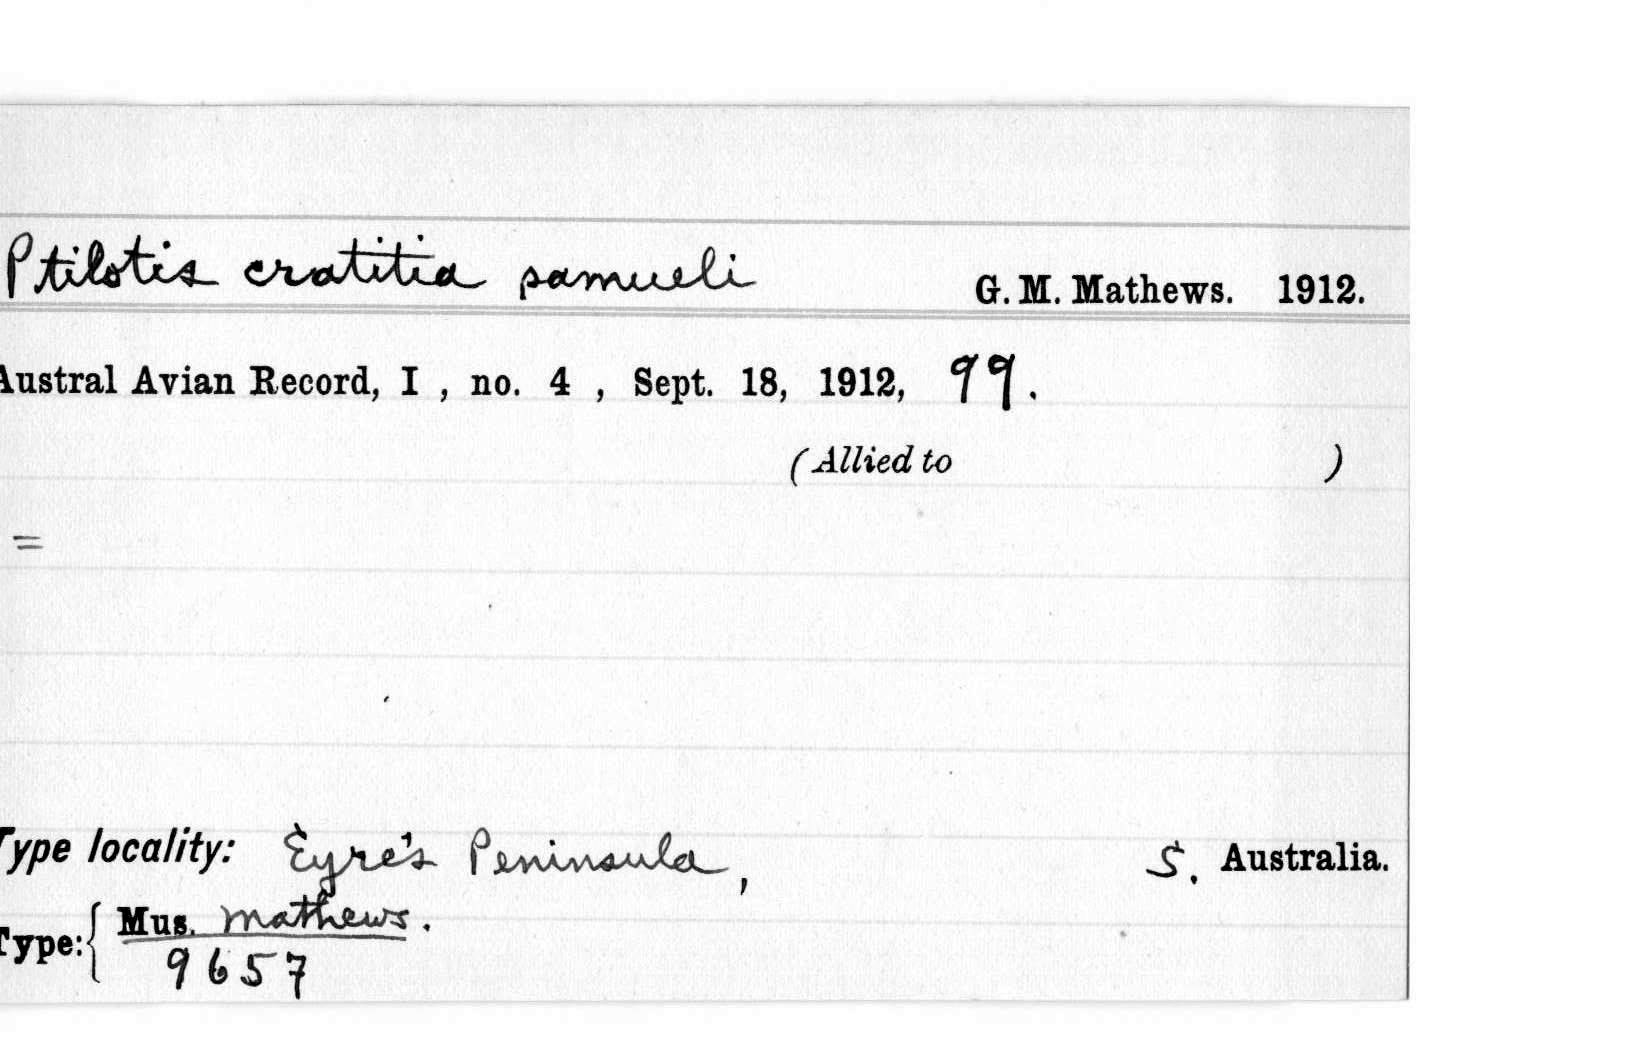 Ptilotis cratitia samueli G. M. Mathews. 1912.
Austral Avian Record, I , no. 4 , Sept. 18, 1912, 99.
(Allied to )
=
Type locality: Eyre's Peninsula, S. Australia.
Type: { Mus. Mathews.
9657